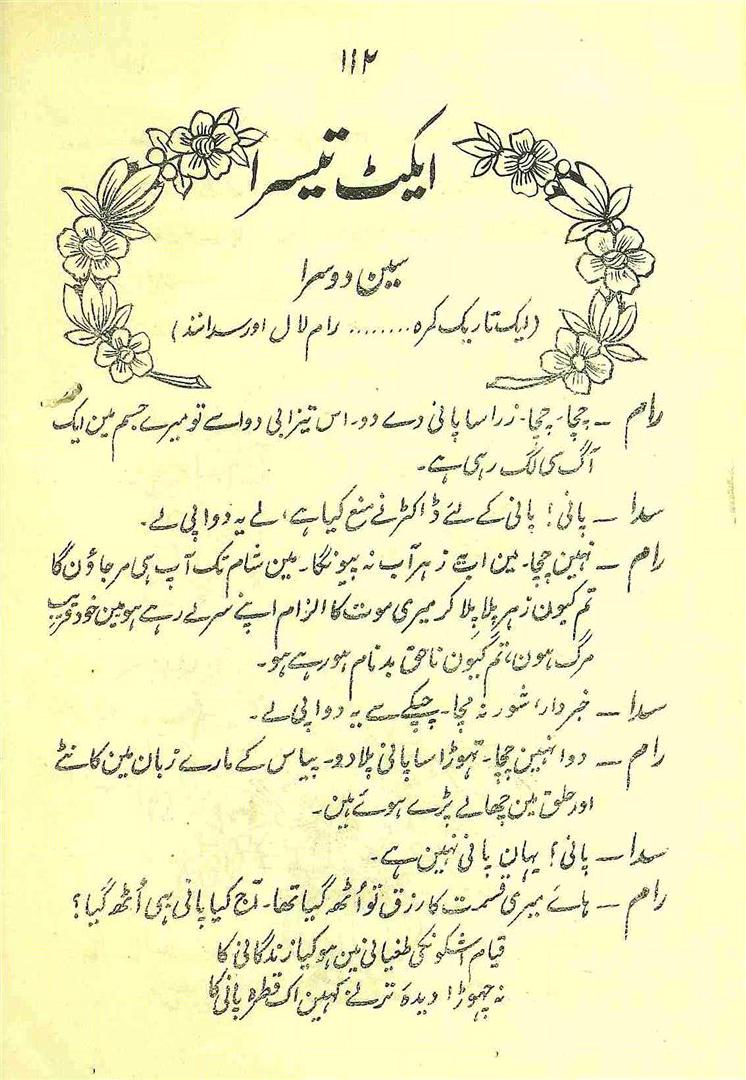 ۱۱۲
ایکٹ تیسرا
سین دوسرا
(ایک تاریک کمرہ........ رام لال اور سدانند)
رام — چچا۔ چچا۔ زرا سا پانی دے دو۔ اس تیزابی دوا سے تو میرے جسم مین ایک
آگ سی لگ رہی ہے۔
سدا — پانی! پانی کے لئے ڈاکٹر نے منع کیا ہے، لے یہ دوا پی لے۔
رام — نہین چچا۔ مین اب زہر آب نہ پیونگا۔ مین شام تک آپ ہی مر جاؤن گا
تم کیون زہر پلا پلا کر میری موت کا الزام اپنے سر لے رہے ہو مین خود قریب
مرگ ہون، تم کیون ناحق بدنام ہو رہے ہو۔
سدا — خبردار! شور نہ مچا۔ چپکے سے یہ دوا پی لے۔
رام — دوا نہین چچا۔ تہوڑا سا پانی پلا دو۔ پیاس کے مارے زبان مین کانٹے
اور حلق مین چھالے پڑے ہوئے ہین۔
سدا — پانی! یہان پانی نہین ہے۔
رام — ہائے میری قسمت کا رزق تو اُٹھ گیا تھا۔ آج کیا پانی بھی اُٹھ گیا؟
قیام اشکونکی طغیانی مین ہو کیا زندگانی کا
نہ چہوڑا دیدہ تر نے کہین اک قطرہ پانی کا